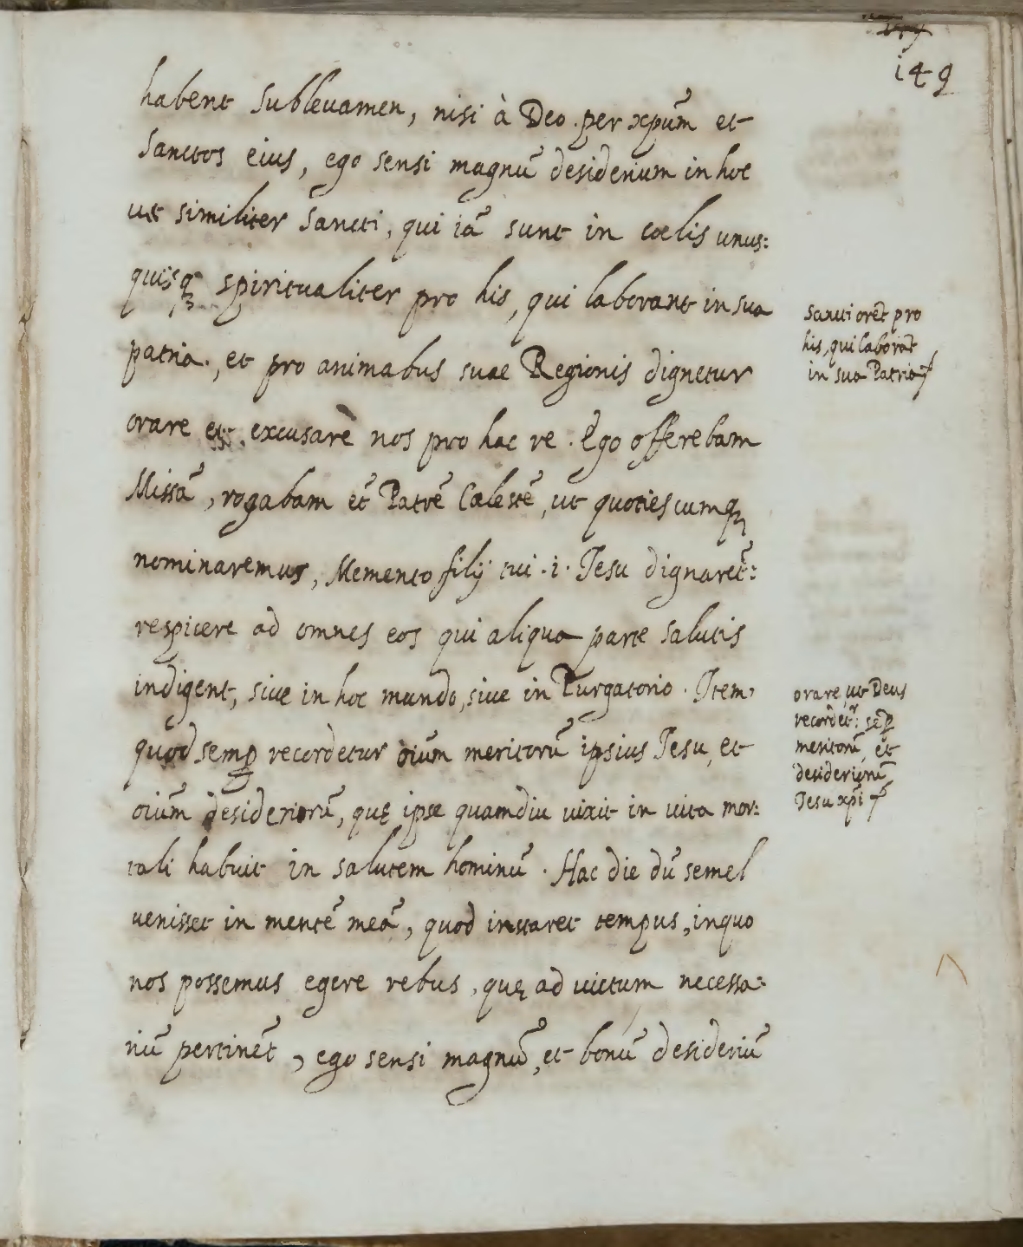 149
habent sublevamen, nisi à Deo per xpūm et
Sanctos eius, ego sensi magnū desiderium in hoc
ut similiter Sancti, qui iā sunt in cœlis unus:
quisq spiritualiter pro his, qui laborant in sua
patria, et pro animabus suae Regionis dignetur
orare et excusare nos pro hac re. Ego offerebam
Missā, rogabam et̄ Patrē Cœlestē, ut quotiescumq
nominaremus, Memento filij tui .i. Jesu dignaret̄:
respicere ad omnes eos qui aliqua parte salutis
indigent, sive in hoc mundo, sive in Purgatorio. Item,
quod semp recordetur oīum meritorū ipsius Jesu, et
oīum desideriorū, quę ipse quamdiu vixit in vita mor:
tali habuit in salutem hominū. Hac die dū semel
venisset in mentē meā, quod instaret tempus, in quo
nos possemus egere rebus, quę ad victum necessa:
riū pertinēt, ego sensi magnū, et bonū desideriū
Sancti orēt pro
his, qui laborāt
in sua Patria
orare, ut Deus
recordet̄: semp
meritorū, et
desideriorū
Jesu xpi